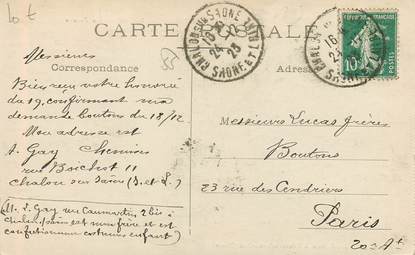 CARTE POSTALE
Correspondance
Adresse
CHALON-SUR-SAONE
SAONE-ET-LOIRE
24
23
10
Messieurs
Bien reçu votre honorée
du 19, confirmant ma
demande boutons du 18/12
Mon adresse est
S. Gay Chemises
rue Boichot 11
Chalon sur Saône (S.-et-L.)
(M. S. Gay rue Caumartin, 2 bis à
Chalon/saône est mon frère et est
confectionneur costumes enfant)
Messieurs Lucas frères
Boutons
23 rue des Cendriers
Paris
20e Art